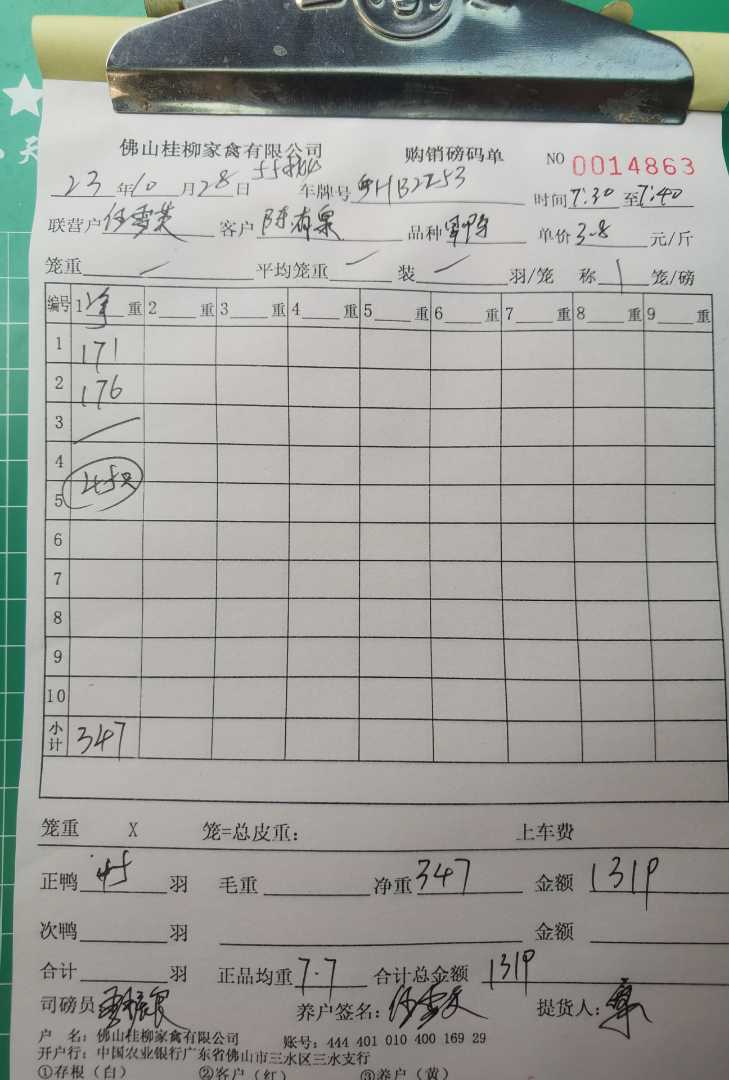 佛山桂柳家禽有限公司 购销磅码单 NO 0014863
23 年 10 月 28 日 车牌号 HB2253 时间 7:30 至 7:40
联营户 客户 品种 单价 3.8 元/斤
笼重 平均笼重 装 羽/笼 称 1 笼/磅
编号 1 净 重 2 重 3 重 4 重 5 重 6 重 7 重 8 重 9 重
1 171
2 176
3
4
5 45只
6
7
8
9
10
小计 347
笼重 X 笼=总皮重： 上车费
正鸭 45 羽 毛重 净重 347 金额 1319
次鸭 羽 金额
合计 羽 正品均重 7.7 合计总金额 1319
司磅员 养户签名： 提货人：
户 名：佛山桂柳家禽有限公司 账号：444 401 010 400 169 29
开户行：中国农业银行广东省佛山市三水区三水支行
①存根（白） ②客户（红） ③养户（黄）